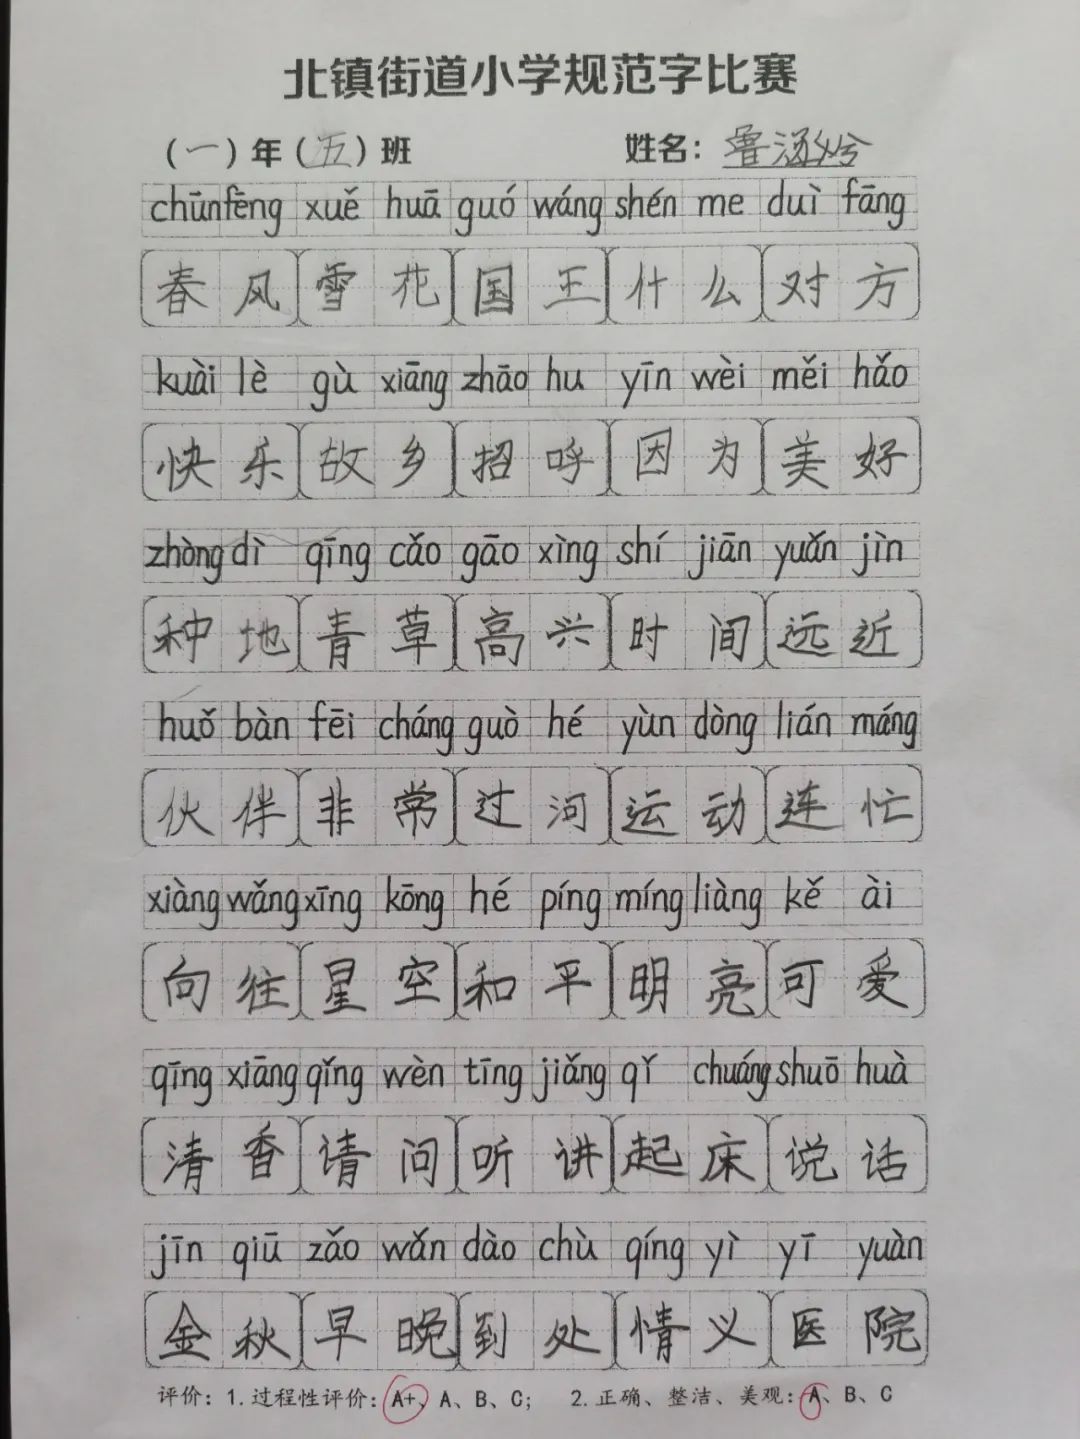 北镇街道小学规范字比赛
（一）年（五）班 姓名：鲁涵兮
chūn fēng xuě huā guó wáng shén me duì fāng
春风雪花国王什么对方
kuài lè gù xiāng zhāo hu yīn wèi měi hǎo
快乐故乡招呼因为美好
zhòng dì qīng cǎo gāo xìng shí jiān yuǎn jìn
种地青草高兴时间远近
huǒ bàn fēi cháng guò hé yùn dòng lián máng
伙伴非常过河运动连忙
xiàng wǎng xīng kōng hé píng míng liàng kě ài
向往星空和平明亮可爱
qīng xiāng qǐng wèn tīng jiǎng qǐ chuáng shuō huà
清香请问听讲起床说话
jīn qiū zǎo wǎn dào chù qíng yì yī yuàn
金秋早晚到处情义医院
评价：1.过程性评价：A+、A、B、C； 2.正确、整洁、美观：A、B、C